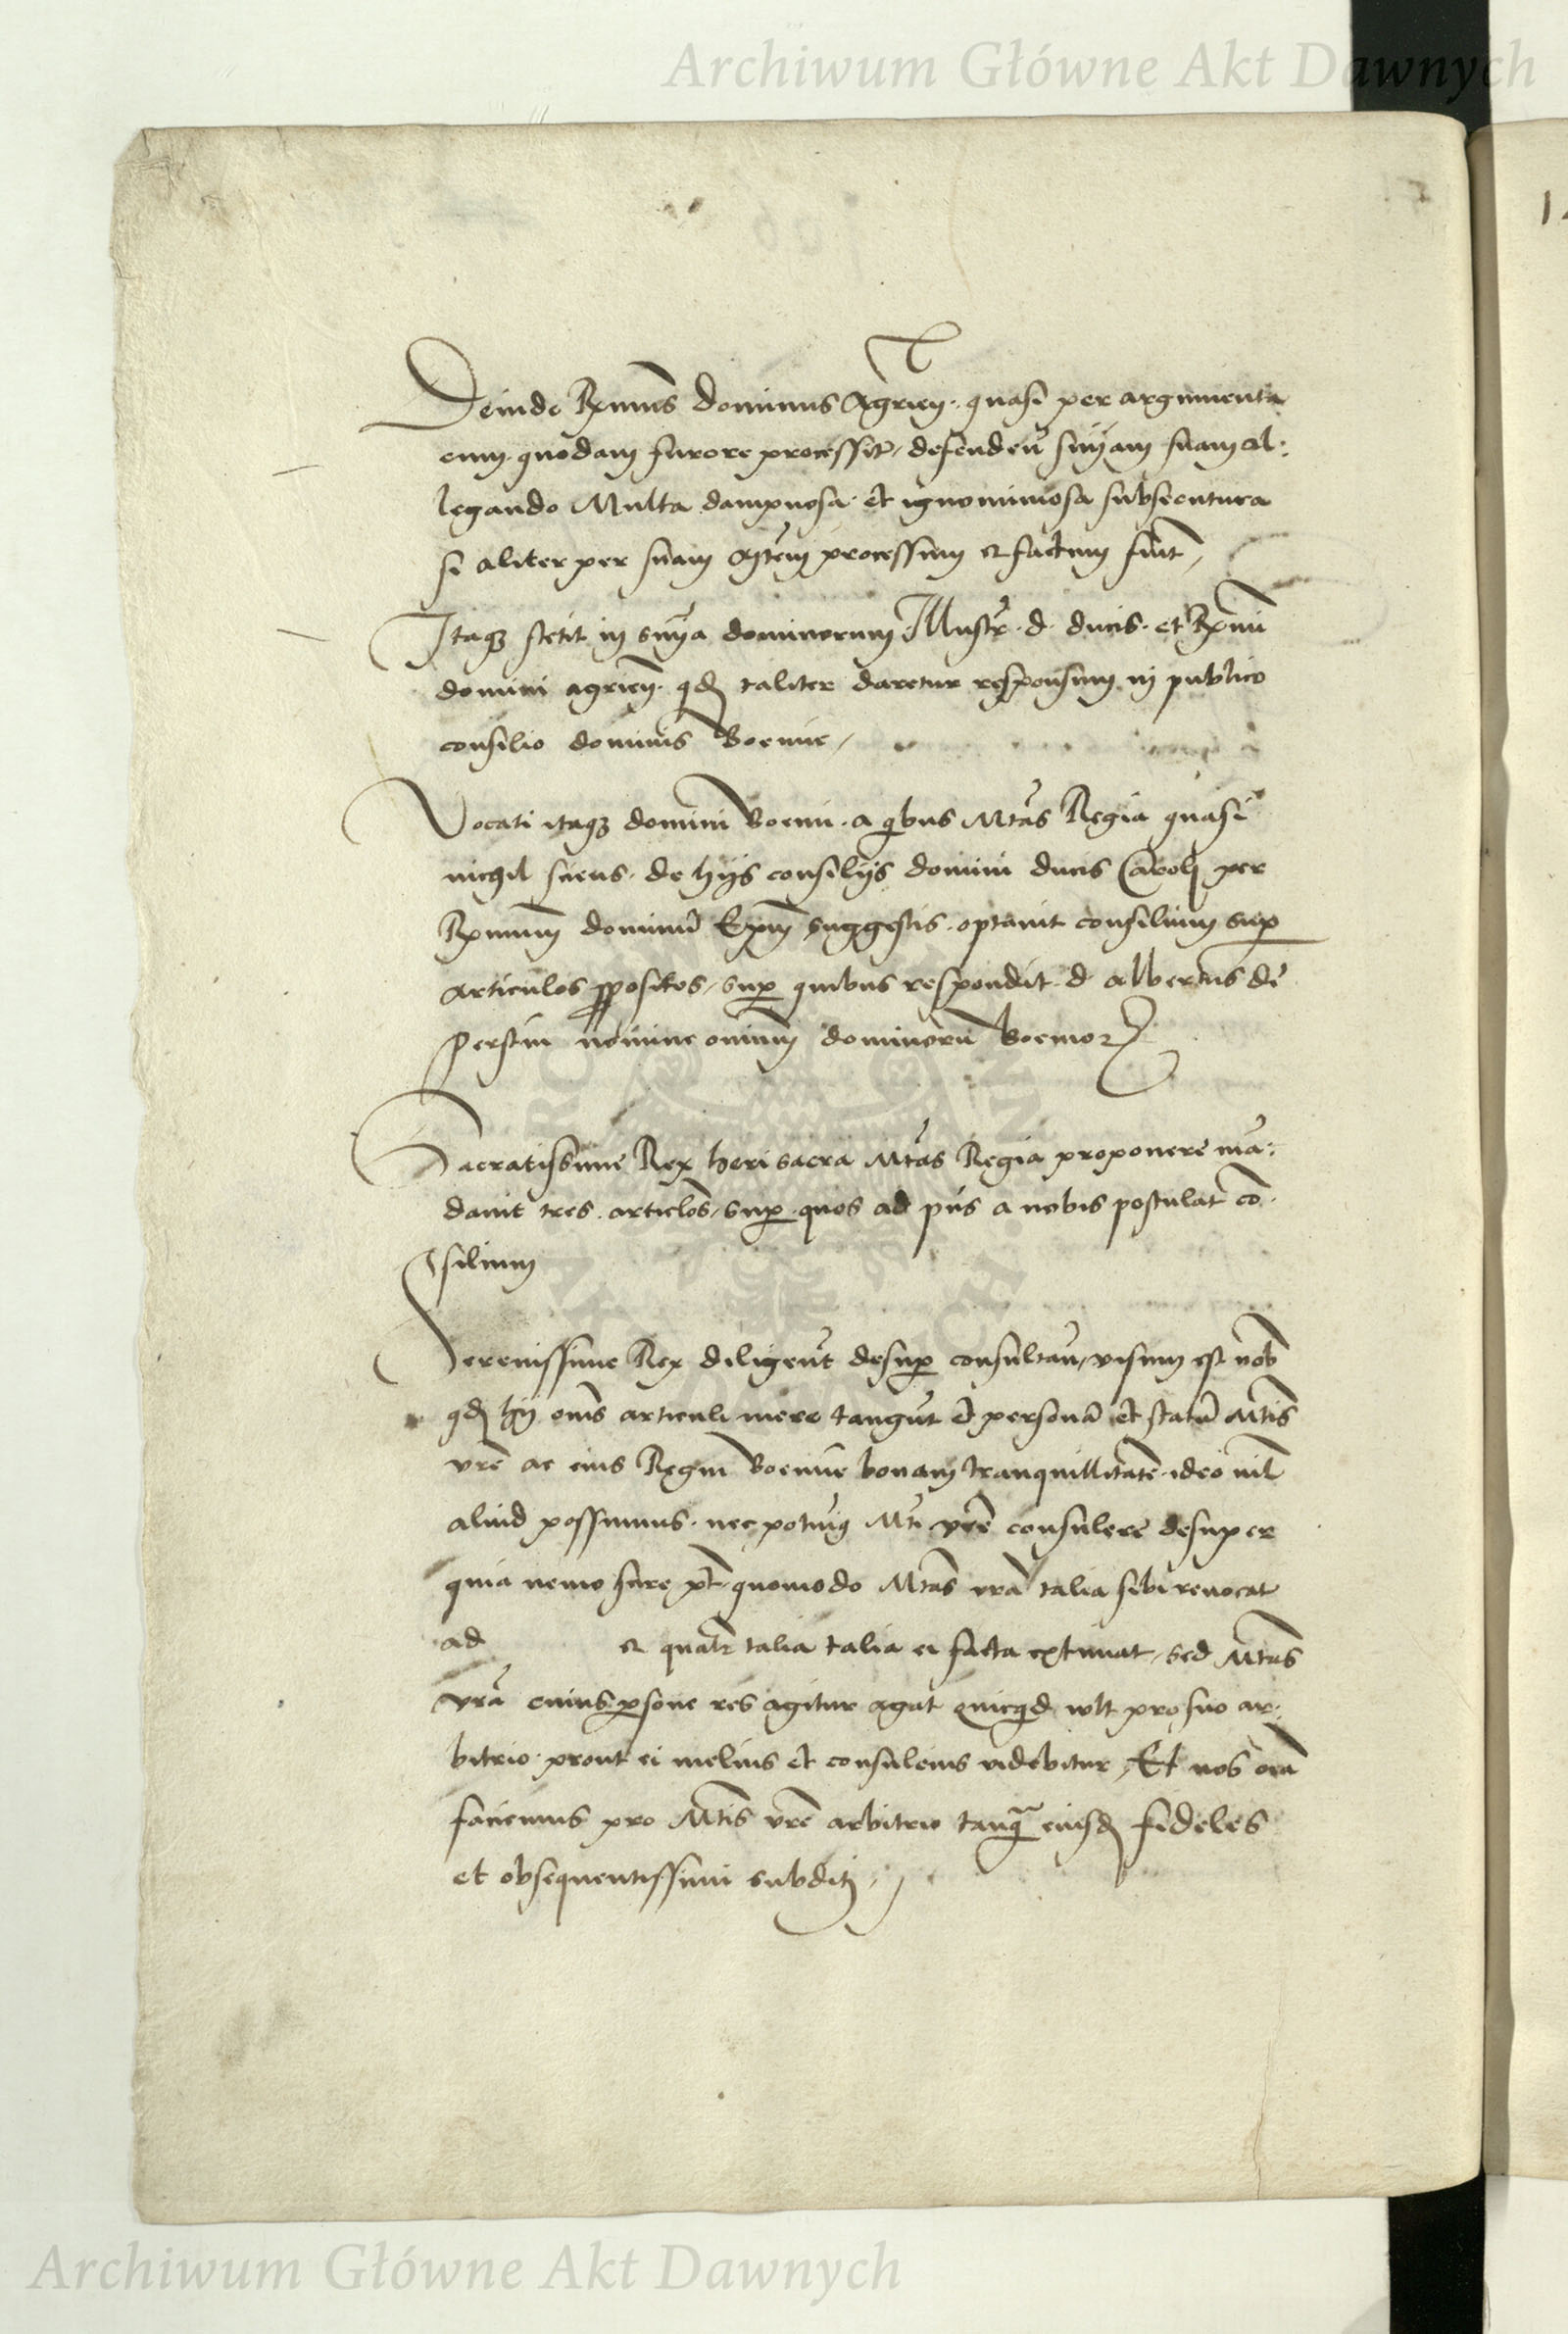 Archiwum Główne Akt Dawnych
Deinde Rxmus dominus Agrien. quasi per argumenta
cum quodam furore processit, defenden̄ sn̄iam suam al:
legando Multa dampnosa et ignominiosa subsecutura
si aliter per suam Mtem processum et factum fuit,
Itaqꝫ stetit in sn̄ia dominorum Illustr. d. ducis. et Rxmi
domini agrien̄. qđ taliter daretur responsum in publico
consilio dominis Boemie,
Vocati itaqꝫ domini Boemi. a qibus Mtas Regia quasi
nichil sciens. de hijs consilijs domini ducis Caroli per
Rxmum dominū Epm̄ suggestis. optauit consilium suꝑ
articulos ꝓpositos, suꝑ quibus respondit. d. albertus de
Perstin nomine omniū dominorū Boemoꝝ
Sacratissime Rex heri sacra Mtas Regia proponere mā:
dauit tres. articlos, suꝑ. quos ad pn̄s a nobis postulat cō.
silium
Serenissime Rex diligent̄ desuꝑ consultau, visum est nob̄
qđ hij om̄s articuli mere tangūt et personā et statū Mtis
vrē ac eius Regni Boemie bonam tranquillitatē. ideo nil
aliud possumus. nec potuim9 Mti vrē consulere desuper
quia nemo scire pt̄. quomodo Mtas vrā talia sibi reuocat
ad et qualr̄ talia talia ei facta extimat, sed Mtas
vrā cuius ꝑsone res agitur agat quicqid wlt pro suo ar:
bitrio. prout ei melius et consulcius videbitur, Et nos oīa
faciemus pro Mtis vrē arbitrio tanqᷓ eiusđ fideles
et obsequentissimi subditi,
Archiwum Główne Akt Dawnych